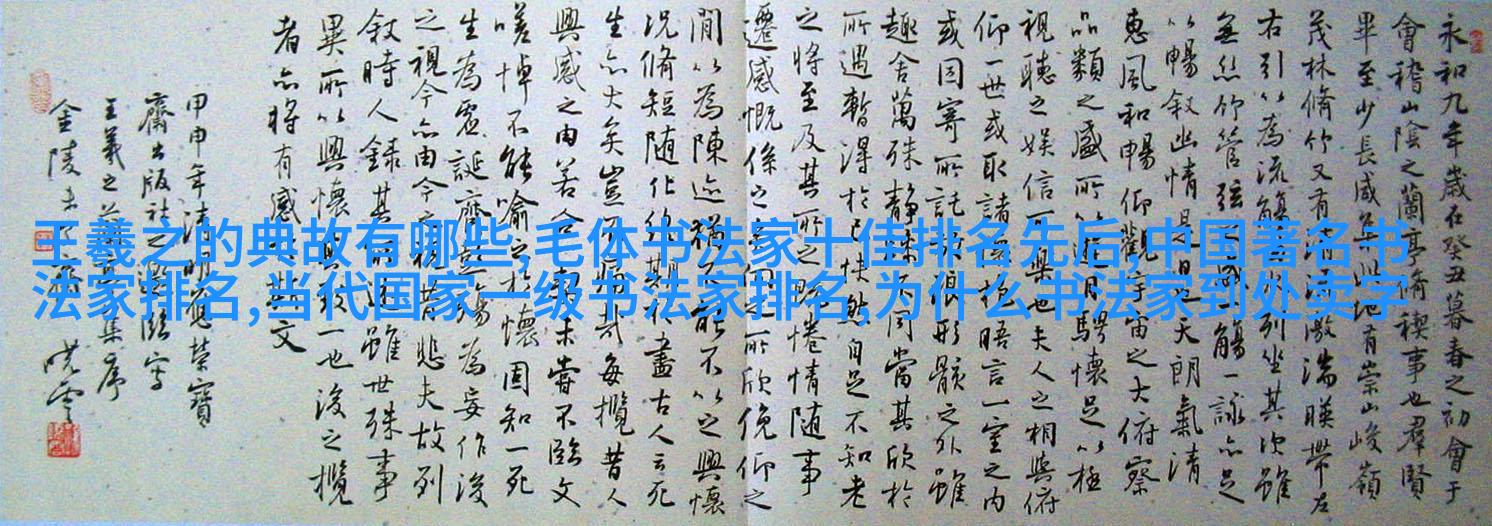 永和九年歲在癸丑暮春之初會于
會稽山陰之蘭亭脩禊事也羣賢
畢至少長咸集此地有崇山峻嶺
茂林脩竹又有清流激湍暎帶左
右引以為流觴曲水列坐其次雖
無絲竹管弦之盛一觴一詠亦足
以暢叙幽情是日也天朗氣清
惠風和暢仰觀宇宙之大俯察
品類之盛所以遊目騁懷足以極
視聽之娛信可樂也夫人之相與俯
仰一世或取諸懷抱晤言一室之内
或因寄所託放浪形骸之外雖
趣舍萬殊静躁不同當其欣於
所遇暫得於己快然自足不知老
之將至及其所之既惓情随事
遷感慨係之矣向之所欣俛仰之
間以為陳迹猶不能不以之興懷
況脩短随化終期於盡古人云死
生亦大矣豈不痛哉每攬昔人
興感之由若合一契未嘗不臨文
嗟悼不能喻之於懷固知一死
生為虛誕齊彭殤為妄作後
之視今亦由今之視昔悲夫故列
叙時人錄其所述雖世殊事
異所以興懷其致一也後之攬
者亦將有感於斯文
甲申年清明應榮寶
齋出版社之邀臨寫
王羲之蘭亭集序
金陵
王羲之的典故有哪些,毛体书法家十佳排名先后,中国著名书
法家排名,当代国家一级书法家排名,为什么书法家到处卖字